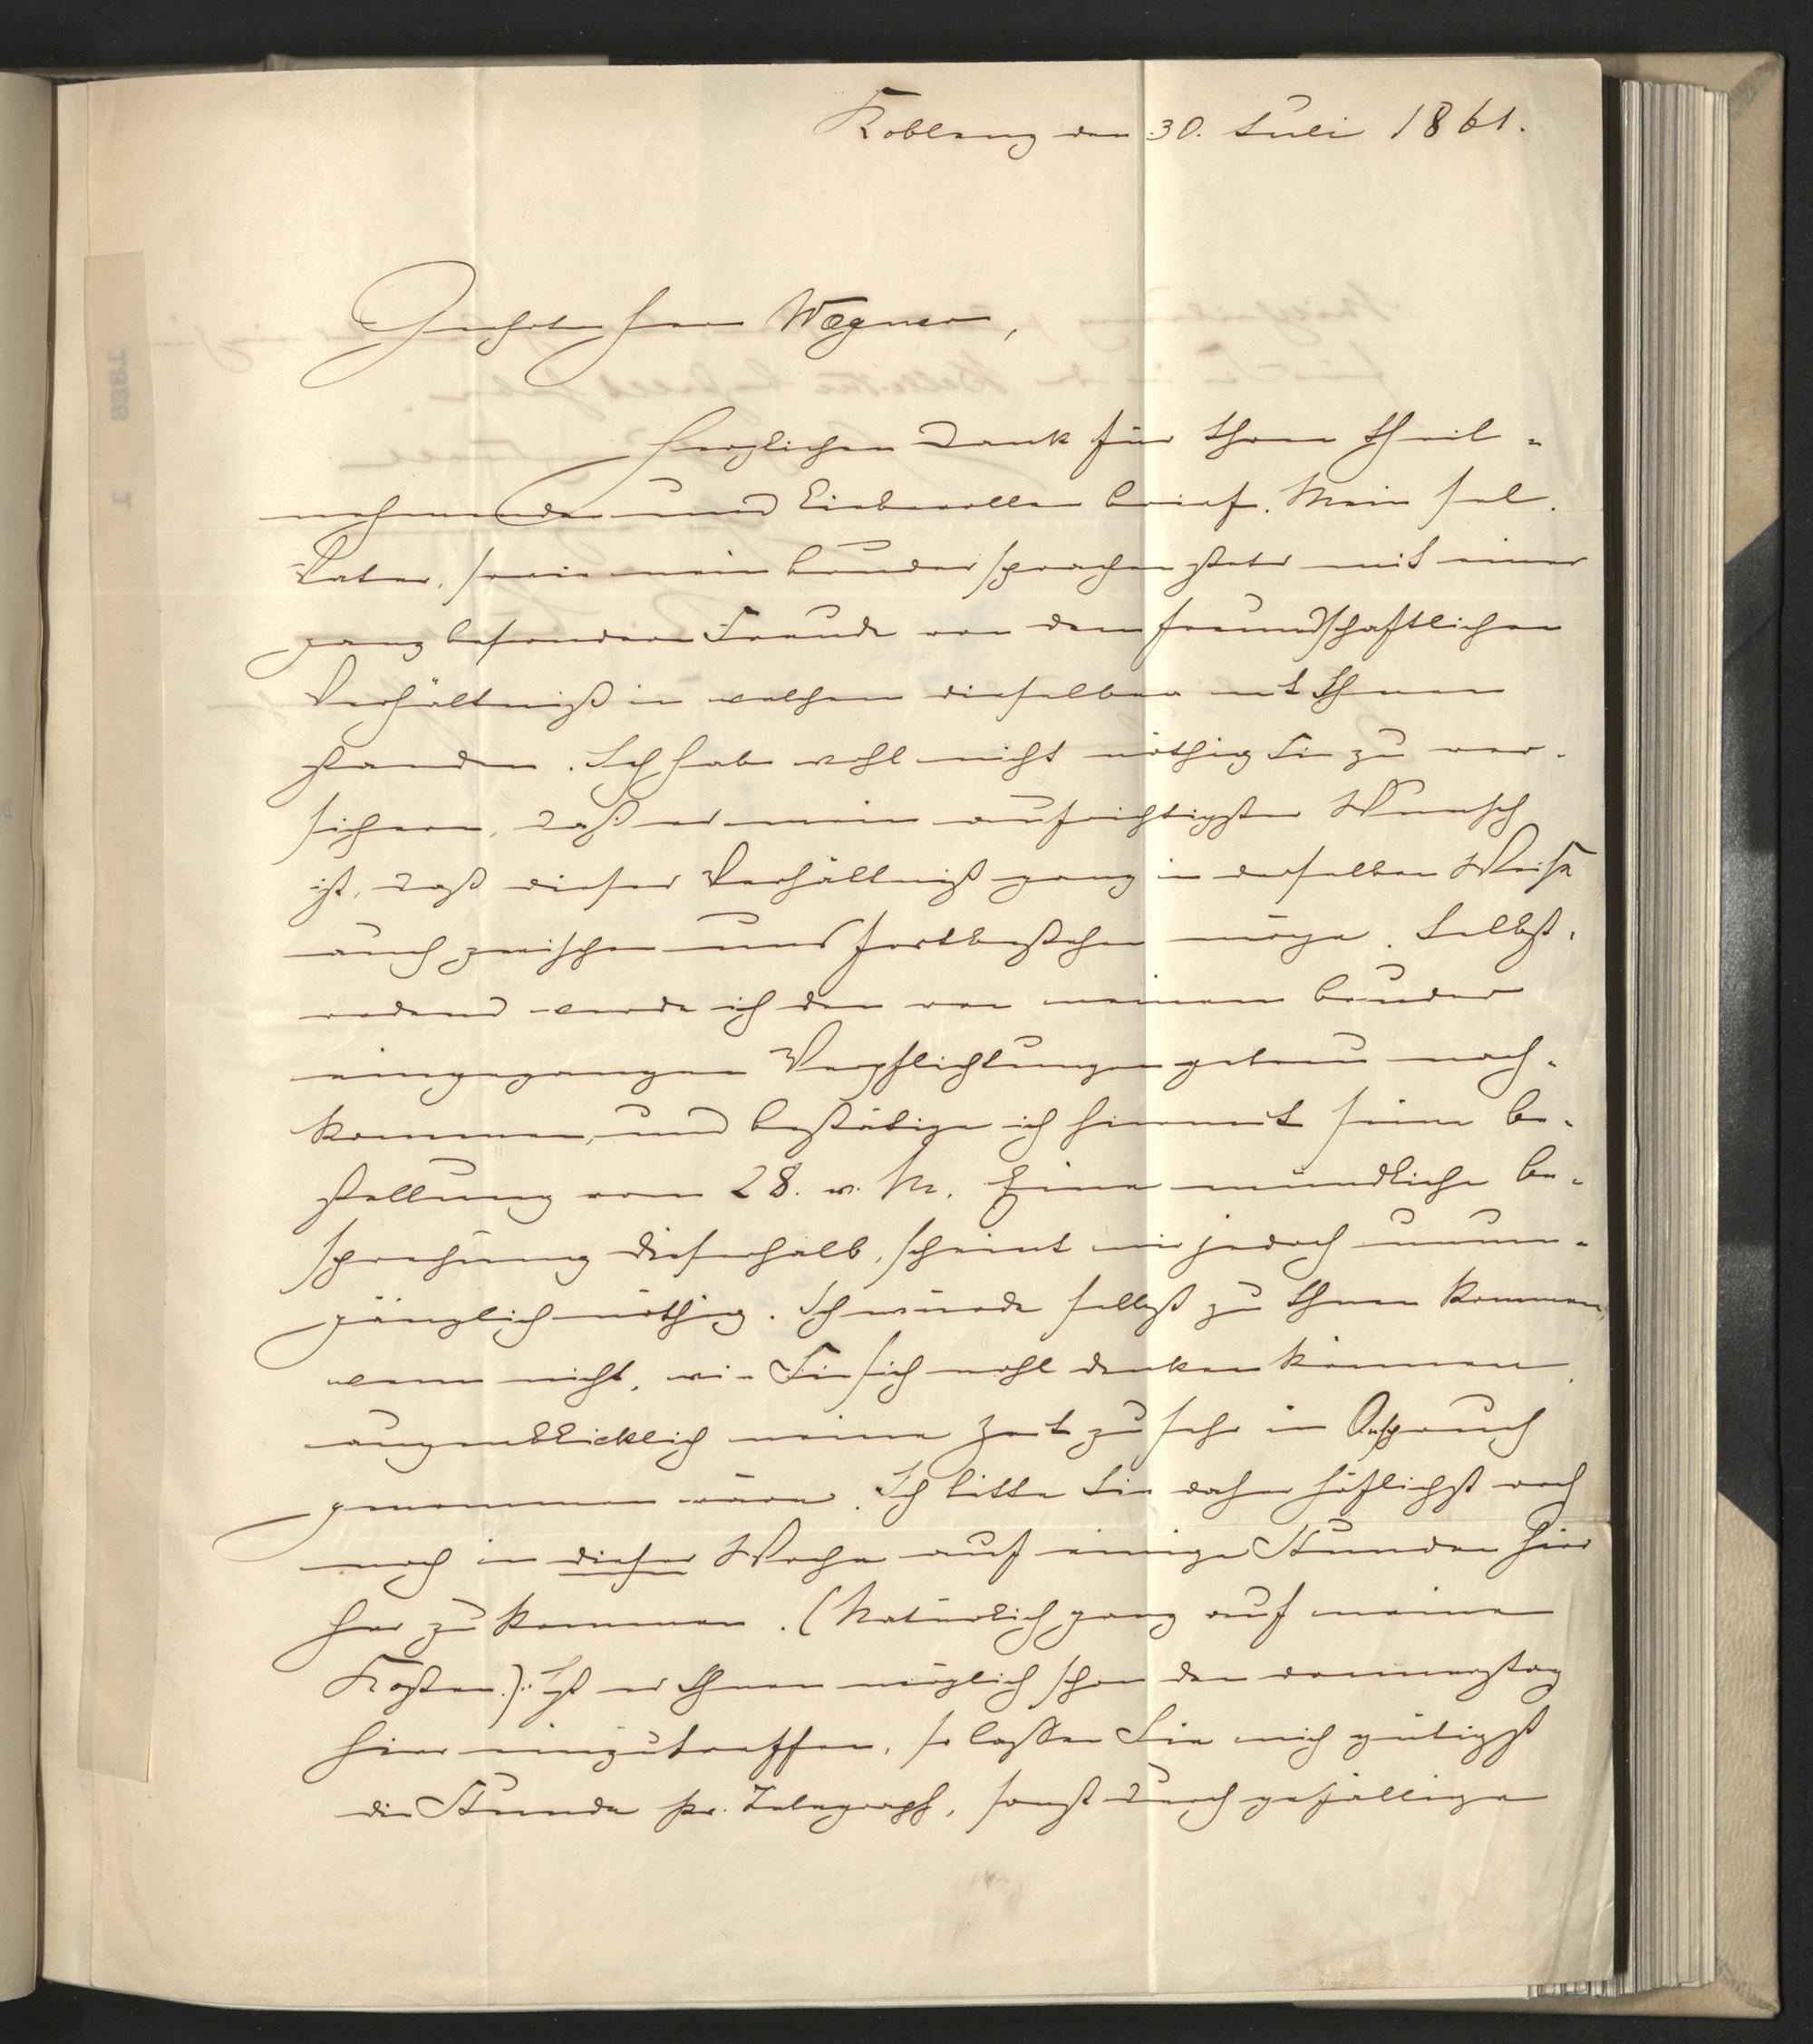 Koblenz den 30. Juli 1861.
Geehrter Herr Wegner,
Herzlichen Dank für Ihren theil-
nehmenden und liebevollen Brief. Mein sel.
Vater, sowie mein Bruder sprachen stets mit einer
ganz besondern Freude von dem freundschaftlichen
Verhältniß in welchem dieselben mit Ihnen
standen. Ich habe wohl nicht nöthig Sie zu ver-
sichern, daß es mein aufrichtigster Wunsch
ist, daß dieses Verhältniß ganz in derselben Weise
auch zwischen uns fortbestehen möge. Selbst-
redend werde ich den von meinem Bruder
eingegangen Verpflichtungen getreu nach-
kommen, und bestätige ich hiermit seine Be-
stellung vom 28. v. M. Eine mündliche Be-
sprechung dieserhalb, scheint mir jedoch unum-
gänglich nöthig. Ich würde selbst zu Ihnen kommen,
wenn nicht, wie Sie sich wohl denken können,
augenblicklich meine Zeit zu sehr in Anspruch
genommen wäre. Ich bitte Sie daher höflichst doch
noch in dieser Woche auf einige Stunden hier
her zu kommen. (Natürlich ganz auf meine
Kosten.) Ist es Ihnen möglich schon den donnerstag
hier einzutreffen, so lassen Sie mich gütigst
die Stunde pr. Telegraph, sonst durch gefällige
1826
1